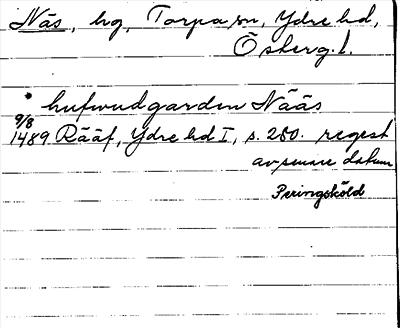 Näs, hg, Torpa sn, Ydre hd,
Österg. l.
* hufwudgarden Näås
9/8
1489 Rääf, Ydre hd I, s. 280. regest
av senare datum
Peringsköld